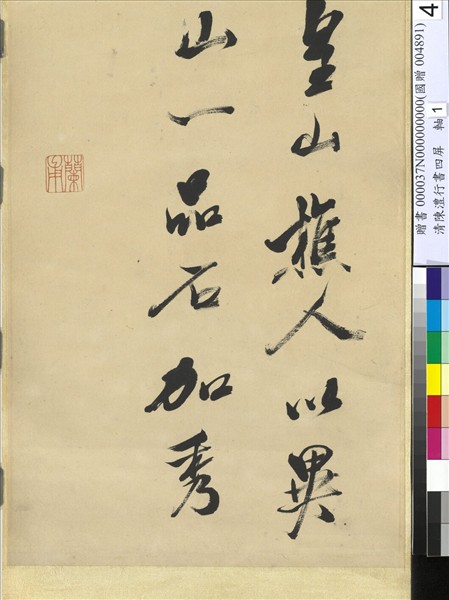 皇山樵人以異
山一品石加秀
蘭甫
4
贈書 000037N000000000(國贈 004891)
清陳澧行書四屏 軸 1